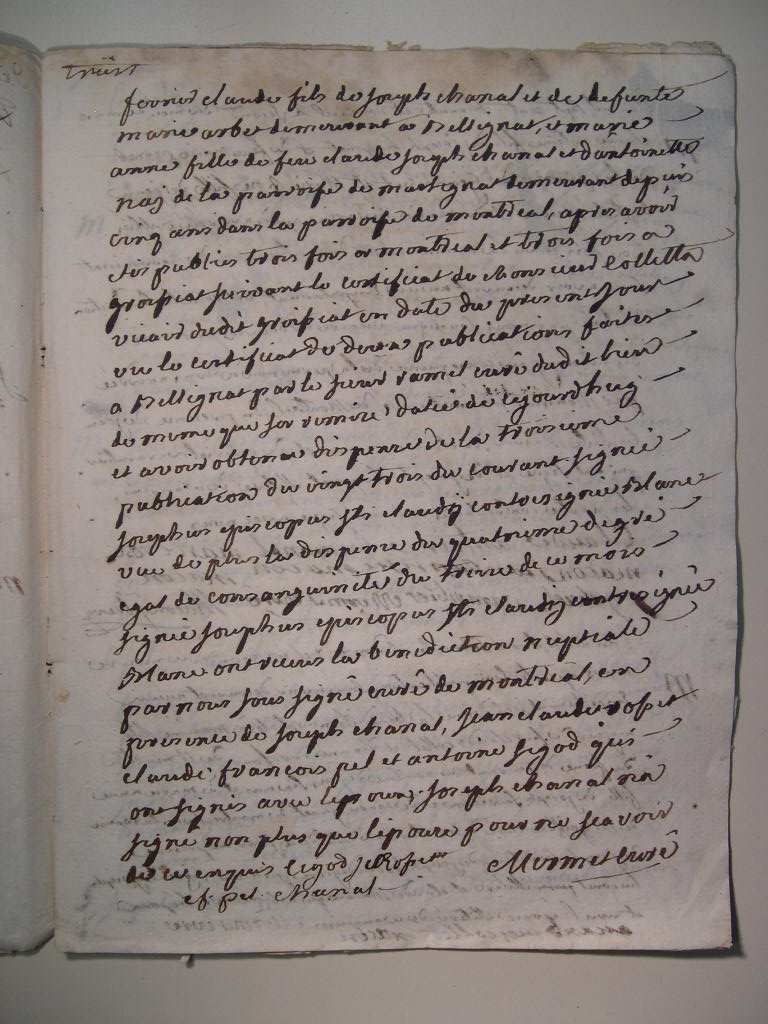 fevrier claude fils de Joseph chanal et de defunte
marie arbet demeurant a Bellignat, et marie
anne fille de feu claude Joseph chanal et d'antoinette
naj de la parroisse de martignat demeurant depuis
cinq ans dans la parroisse de montreal, apres avoir
etés publiés trois fois a montreal et trois fois a
groissiat suivant le certificat de monsieur Collette
vicaire dudit groissiat en date du present jour
vu le certificat de deux publications faites
a Bellignat par le sieur ramel curé dudit lieu
de meme que son remise daté de cejourdhuy
et avoir obtenue dispense de la troisieme
publication du vingt trois du courant signée
Josephus episcopus Sti claudij contresignée Blanc
vue de plus la dispense du quatrieme degré
egal de consanguinité du treize de ce mois
signée Josephus episcopus Sti claudij contresignée
Blanc ont reçus la benediction nuptiale
par nous sous signé curé de montreal, en
presence de Joseph chanal, Jean claude rosset
claude françois pel et antoine sigod qui
ont signés avec lepoux, Joseph chanal n'a
signé non plus que l'epouse pour ne scavoir
de ce enquis Sigod JC Rosset Mermet curé
cf pel chanal